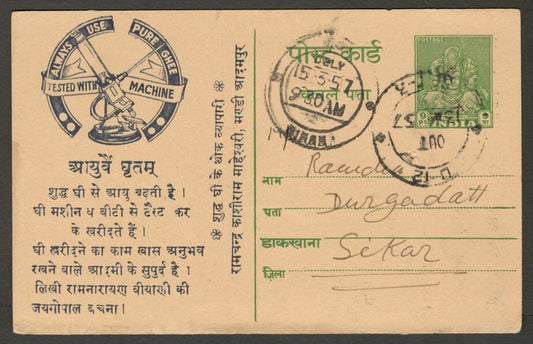 ALWAYS USE PURE GHEE
TESTED WITH MACHINE
आयुर्वै घृतम्
शुद्ध घी से आयु बढ़ती है ।
घी मशीन व बीटी से टैस्ट कर
के खरीदते हैं ।
घी खरीदने का काम खास अनुभव
रखने वाले आदमी के सुपुर्द है ।
लिखी रामनारायण बीयाणी की
जयगोपाल बचना ।
❊ शुद्ध घी के थोक व्यापारी ❊
रामचन्द्र काशीराम माहेश्वरी, मण्डी आदमपुर
पोस्ट कार्ड
केवल पता
POSTAGE
9 PS
INDIA
DELY
9-30AM
OUT
नाम
पता Durgadatt
डाकखाना Sekar
ज़िला